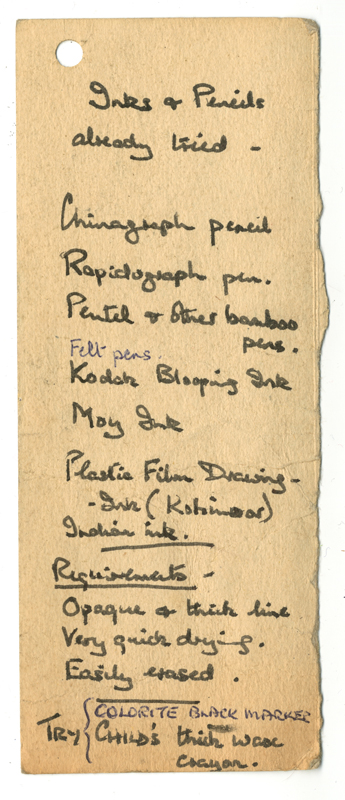 Inks & Pencils
already tried -
Chinagraph pencil
Rapidograph pen.
Pentel & other bamboo
pens.
Felt pens.
Kodak Blooping Ink
Moy Ink
Plastic Film Drawing -
- Ink (Kohinoor)
Indian ink.
Requirements -
Opaque & thick line
Very quick drying.
Easily erased.
COLORITE BLACK MARKER
TRY { CHILD'S thick wax
crayon.